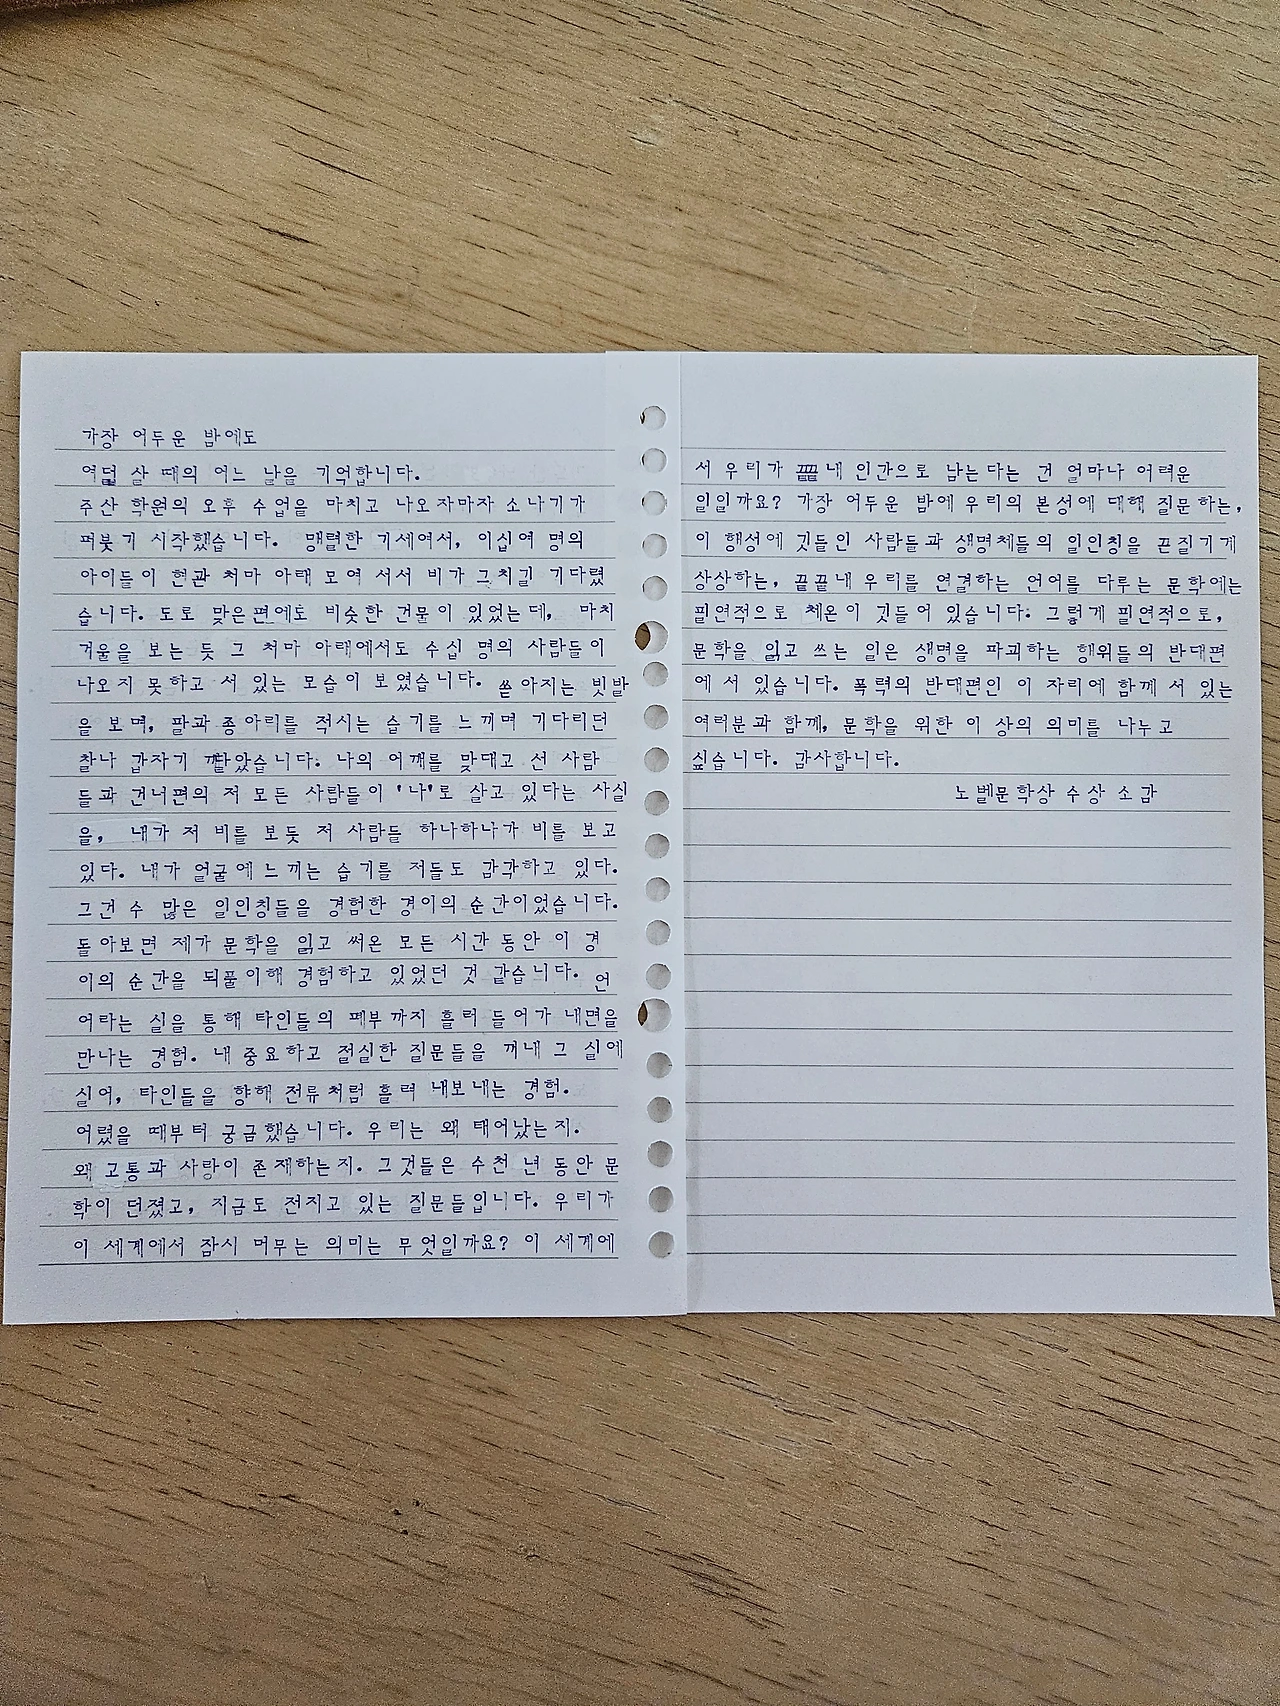 가장 어두운 밤에도
여덟 살 때의 어느 날을 기억합니다.
주산 학원의 오후 수업을 마치고 나오자마자 소나기가
퍼붓기 시작했습니다. 맹렬한 기세여서, 이십여 명의
아이들이 현관 처마 아래 모여 서서 비가 그치길 기다렸
습니다. 도로 맞은편에도 비슷한 건물이 있었는데, 마치
거울을 보는 듯 그 처마 아래에서도 수십 명의 사람들이
나오지 못하고 서 있는 모습이 보였습니다. 쏟아지는 빗발
을 보며, 팔과 종아리를 적시는 습기를 느끼며 기다리던
찰나 갑자기 깨닫았습니다. 나의 어깨를 맞대고 선 사람
들과 건너편의 저 모든 사람들이 '나'로 살고 있다는 사실
을, 내가 저 비를 보듯 저 사람들 하나하나가 비를 보고
있다. 내가 얼굴에 느끼는 습기를 저들도 감각하고 있다.
그건 수 많은 일인칭들을 경험한 경이의 순간이었습니다.
돌아보면 제가 문학을 읽고 써온 모든 시간 동안 이 경
이의 순간을 되풀이해 경험하고 있었던 것 같습니다. 언
어라는 실을 통해 타인들의 폐부까지 흘러 들어가 내면을
만나는 경험. 내 중요하고 절실한 질문들을 꺼내 그 실에
실어, 타인들을 향해 전류처럼 흘려 내보내는 경험.
어렸을 때부터 궁금했습니다. 우리는 왜 태어났는지.
왜 고통과 사랑이 존재하는지. 그것들은 수천 년 동안 문
학이 던졌고, 지금도 전지고 있는 질문들입니다. 우리가
이 세계에서 잠시 머무는 의미는 무엇일까요? 이 세계에
서 우리가 끝끝내 인간으로 남는다는 건 얼마나 어려운
일일까요? 가장 어두운 밤에 우리의 본성에 대해 질문하는,
이 행성에 깃들인 사람들과 생명체들의 일인칭을 끈질기게
상상하는, 끝끝내 우리를 연결하는 언어를 다루는 문학에는
필연적으로 체온이 깃들어 있습니다. 그렇게 필연적으로,
문학을 읽고 쓰는 일은 생명을 파괴하는 행위들의 반대편
에 서 있습니다. 폭력의 반대편인 이 자리에 함께 서 있는
여러분과 함께, 문학을 위한 이 상의 의미를 나누고
싶습니다. 감사합니다.
노벨문학상 수상 소감